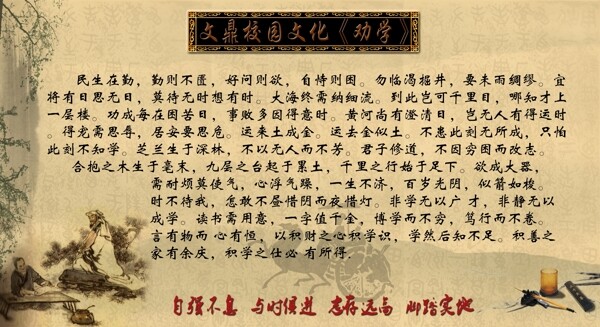 文鼎校园文化《劝学》
民生在勤，勤则不匮，好问则欲，自恃则困。勿临渴掘井，要未雨绸缪。宜
将有日思无日，莫待无时想有时。大海终需纳细流。到此岂可千里目，哪知才上
一层楼。功成每在困苦日，事败多因得意时。黄河尚有澄清日，岂无人有得运时
。得宠需思辱，居安要思危。运来土成金。运去金似土。不患此刻无所成，只怕
此刻不知学。芝兰生于深林，不以无人而不芳。君子修道，不因穷困而改志。
合抱之木生于毫末，九层之台起于累土，千里之行始于足下。欲成大器，
需耐烦莫使气，心浮气躁，一生不济，百岁光阴，似箭如梭。
时不待我，怎敢不昼惜阴而夜惜灯。非学无以广才，非静无以
成学。读书需用意，一字值千金，博学而不穷，笃行而不卷。
言有物而心有恒，以积财之心积学识，学然后知不足。积善之
家有余庆，积学之仕必有所得.
自强不息 与时俱进 志存远高 脚踏实地